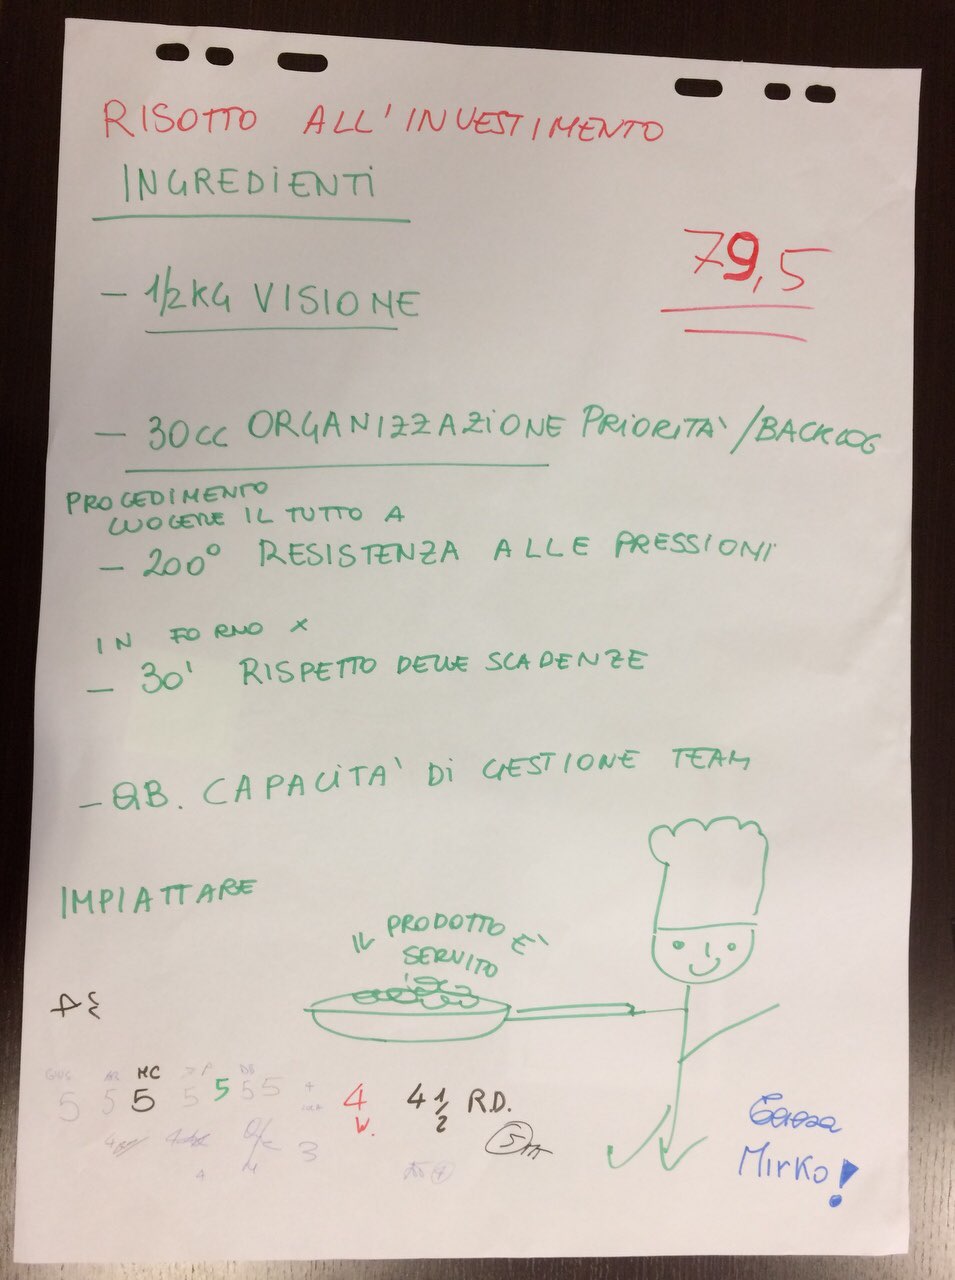 RISOTTO ALL'INVESTIMENTO
INGREDIENTI
79,5
- 1/2KG VISIONE
- 30CC ORGANIZZAZIONE PRIORITA'/BACKLOG
PROCEDIMENTO
CUOCERE IL TUTTO A
- 200° RESISTENZA ALLE PRESSIONI
IN FORNO X
- 30' RISPETTO DELLE SCADENZE
- QB. CAPACITA' DI GESTIONE TEAM
IMPIATTARE
IL PRODOTTO È
SERVITO
MC
5 5 5 5 5 5 5
4 4 1/2 R.D.
W.
5
3
4
Mirko!